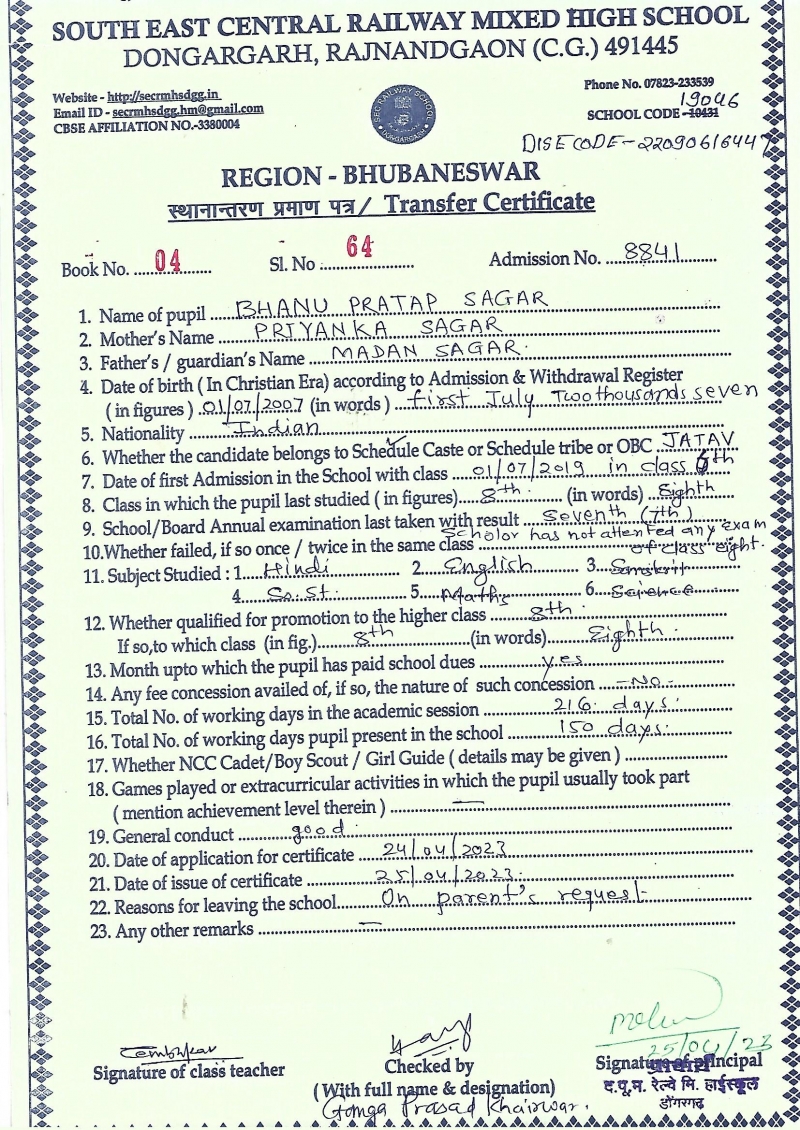 SOUTH EAST CENTRAL RAILWAY MIXED HIGH SCHOOL
DONGARGARH, RAJNANDGAON (C.G.) 491445
Website - http://secrmhsdgg.in
Email ID - secrmhsdgg.hm@gmail.com
CBSE AFFILIATION NO.-3380004
SEC RAILWAY SCHOOL
DONGARGARH
Phone No. 07823-233539
19046
SCHOOL CODE -10431
DISE CODE-22090616447
REGION - BHUBANESWAR
स्थानान्तरण प्रमाण पत्र / Transfer Certificate
Book No. ...04... Sl. No :...64... Admission No. ...8841...
1. Name of pupil ...BHANU PRATAP SAGAR...
2. Mother's Name ...PRIYANKA SAGAR...
3. Father's / guardian's Name ...MADAN SAGAR...
4. Date of birth ( In Christian Era) according to Admission & Withdrawal Register
(in figures ) 01/07/2007 (in words ) ...first July Twothousands seven
5. Nationality ...Indian...
6. Whether the candidate belongs to Schedule Caste or Schedule tribe or OBC JATAV
7. Date of first Admission in the School with class ...01/07/2019 in class 6th
8. Class in which the pupil last studied ( in figures)...8th... (in words) ...Eighth
9. School/Board Annual examination last taken with result ...Seventh (7th)...
10.Whether failed, if so once / twice in the same class Scholor has not attented any exam
of class eight.
11. Subject Studied : 1...Hindi... 2 ...English... 3...Sanskrit
4 ...So.St... 5...Maths... 6...Science
12. Whether qualified for promotion to the higher class ...8th...
If so,to which class (in fig.)...8th...(in words)...Eighth...
13. Month upto which the pupil has paid school dues ...yes...
14. Any fee concession availed of, if so, the nature of such concession ...-No-...
15. Total No. of working days in the academic session ...216 days...
16. Total No. of working days pupil present in the school ...150 days...
17. Whether NCC Cadet/Boy Scout / Girl Guide ( details may be given ) ...
18. Games played or extracurricular activities in which the pupil usually took part
( mention achievement level therein ) ...—...
19. General conduct ...good...
20. Date of application for certificate ...24/04/2023...
21. Date of issue of certificate ...25/04/2023...
22. Reasons for leaving the school...On parent's request...
23. Any other remarks ...—...
25/04/23
Signature of class teacher Checked by Signature of principal
(With full name & designation)
Ganga Prasad Khairwar.
प्राचार्य
द.पू.म. रेल्वे मि. हाईस्कूल
डोंगरगढ़